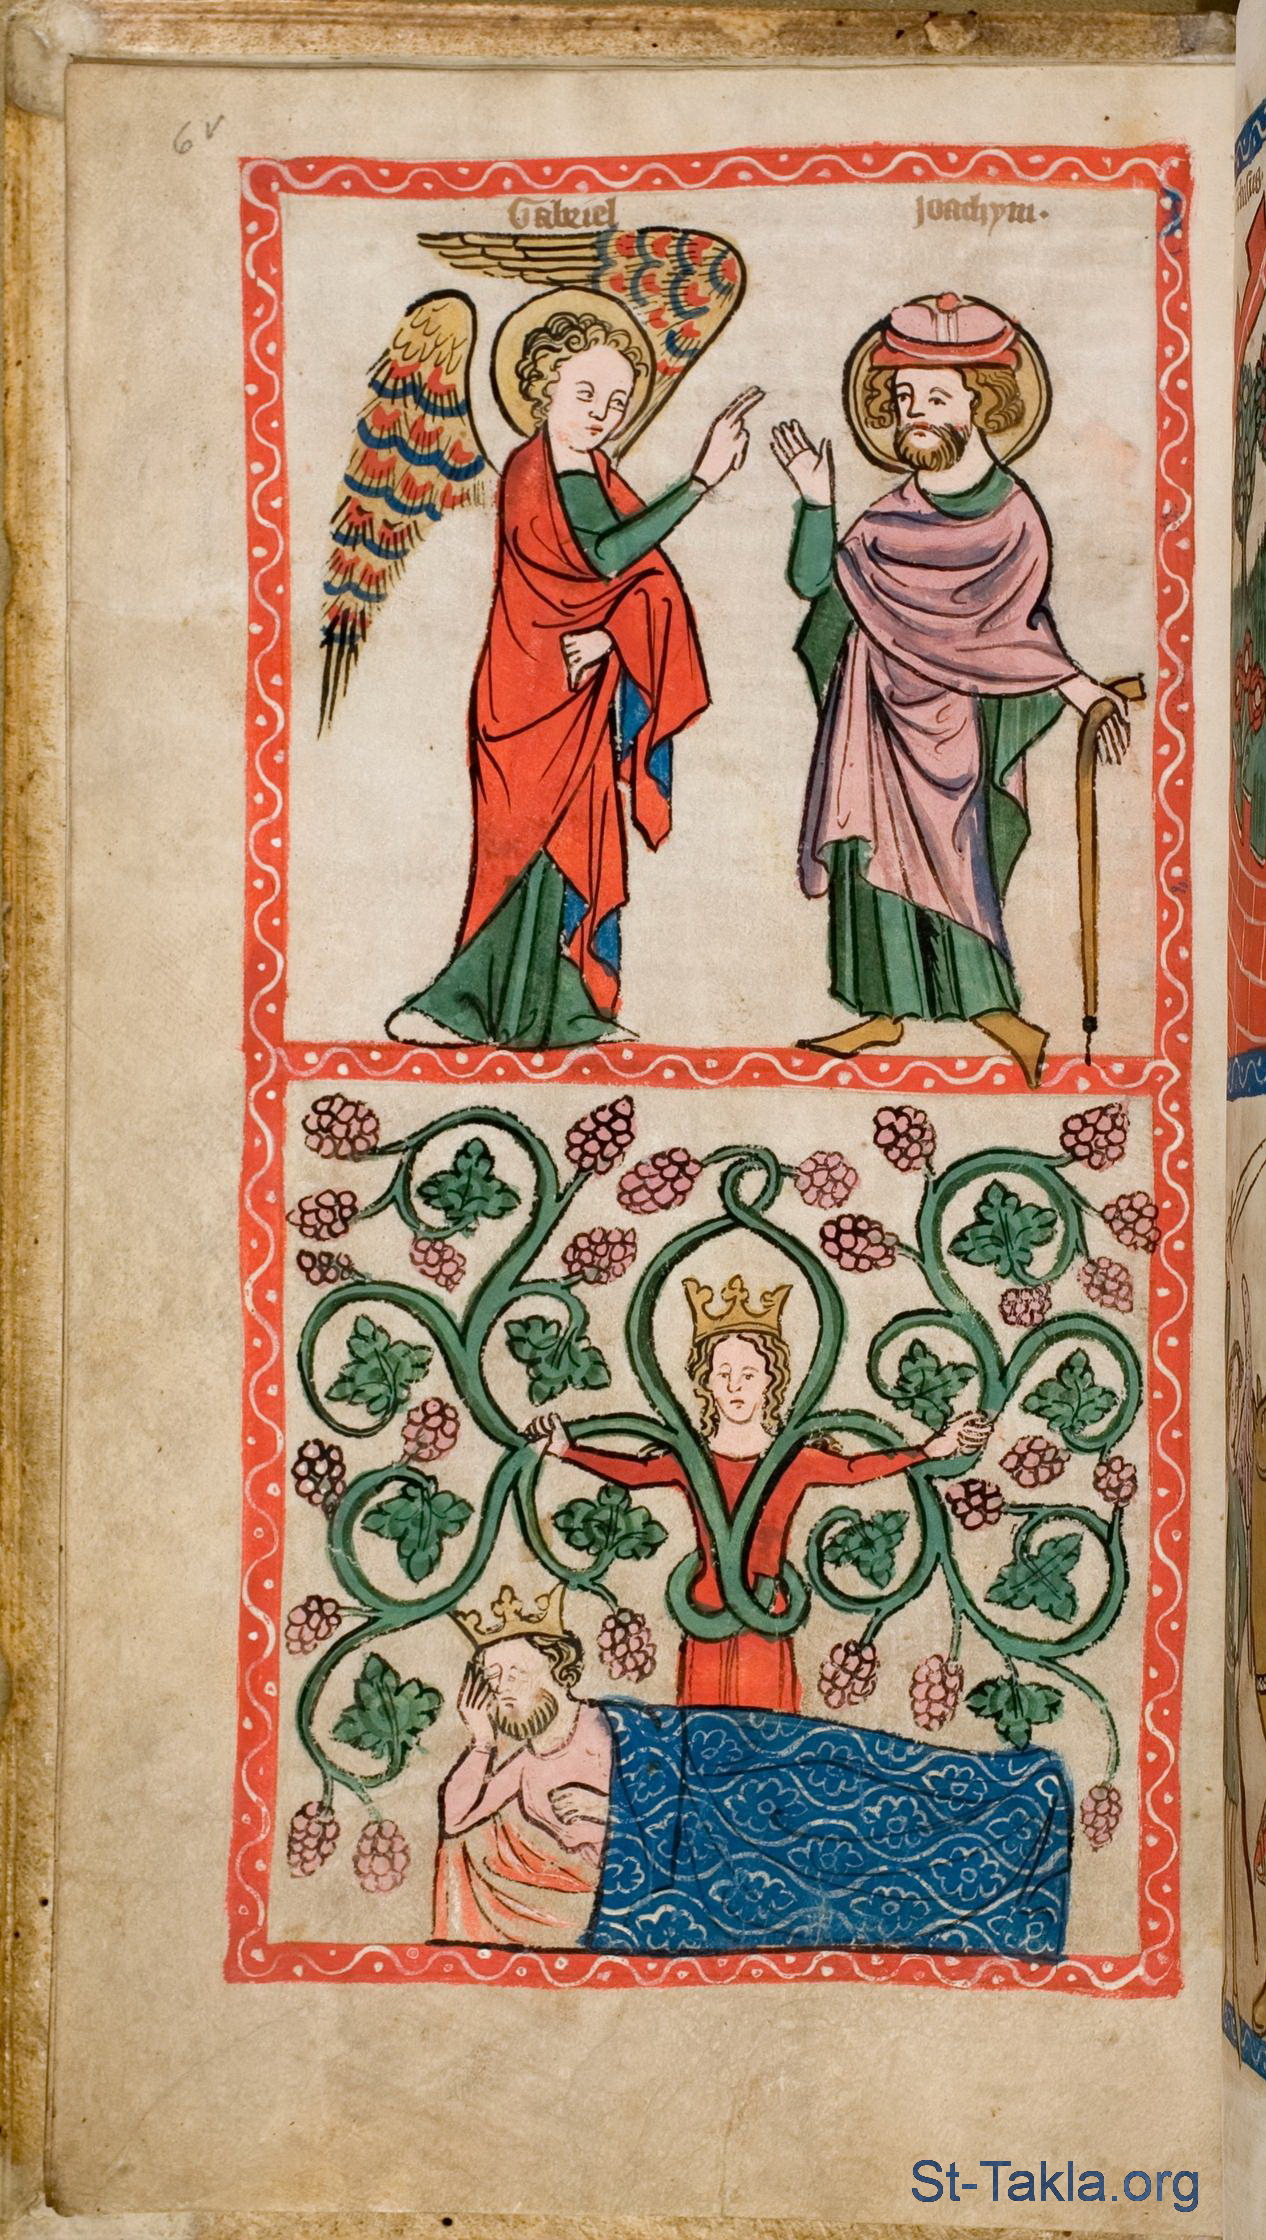 6v
Gabriel
Joachym.
St-Takla.org